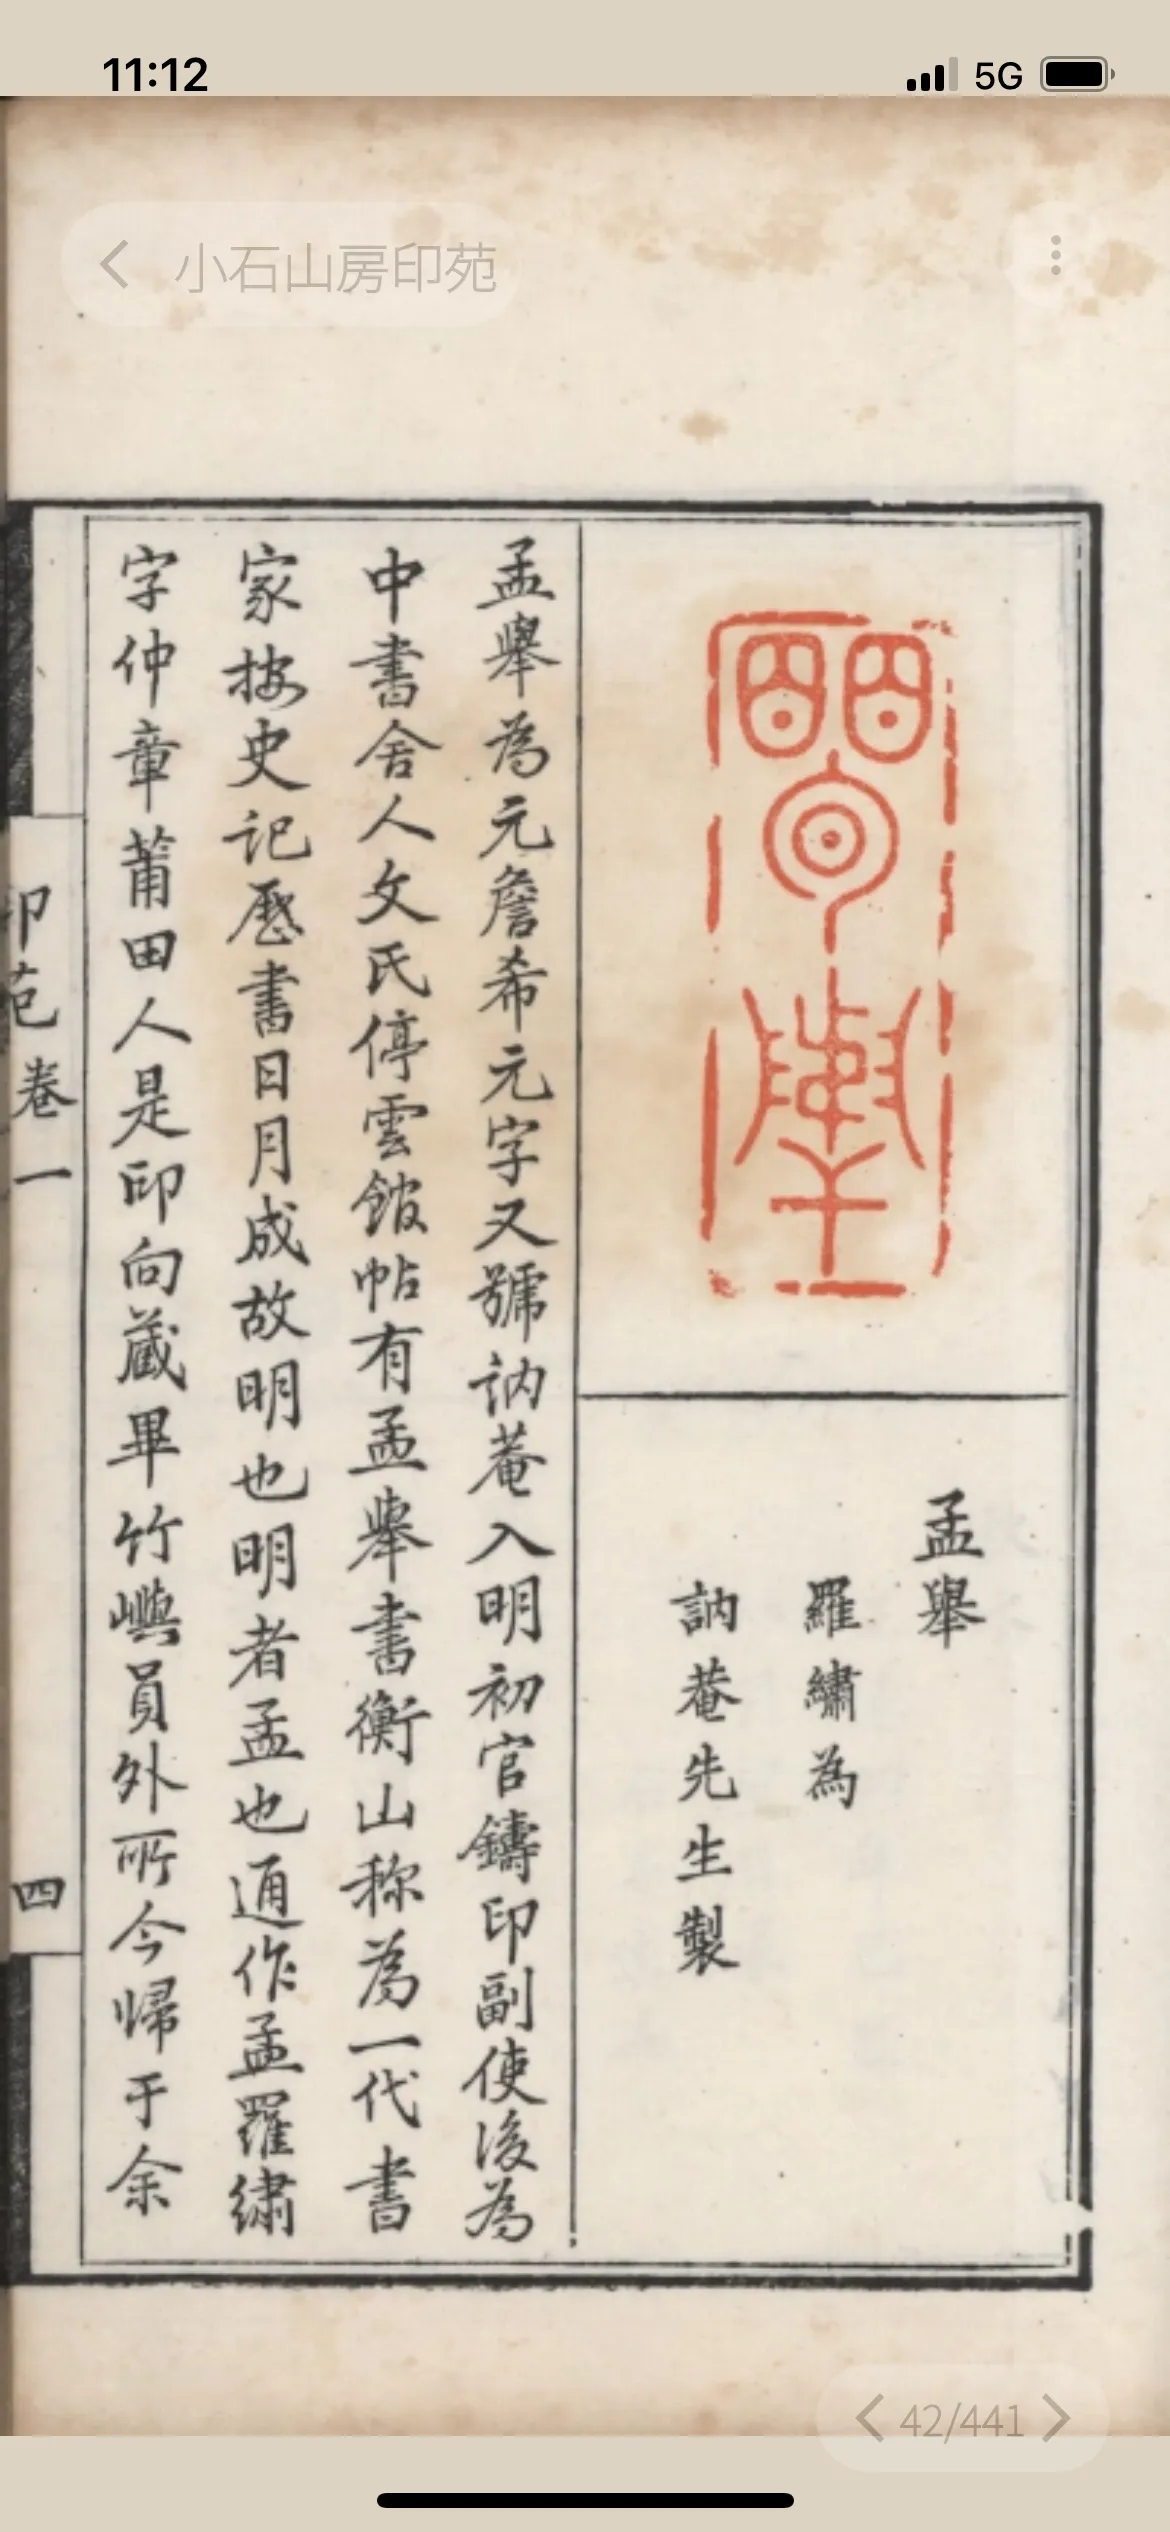 11:12
5G
小石山房印苑
孟舉
羅繡為
訥菴先生製
孟舉為元詹希元字又號訥菴入明初官鑄印副使後為
中書舍人文氏停雲館帖有孟舉書衡山称為一代書
家按史记歷書日月成故明也明者孟也通作孟羅繡
字仲章莆田人是印向藏畢竹嶼員外所今歸于余
印苑卷一
四
42/441